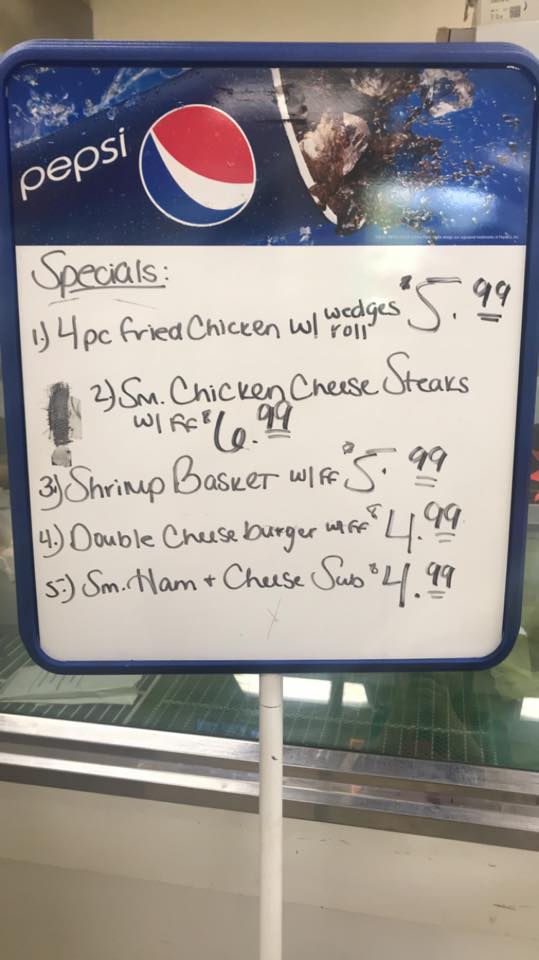 pepsi
Specials:
1.) 4pc fried Chicken w/ wedges roll $5.99
2) Sm. Chicken Cheese Steaks
w/ FF $6.99
3.) Shrimp Basket w/ FF $5.99
4.) Double Cheeseburger w/ FF $4.99
5.) Sm. Ham + Cheese Sub $4.99